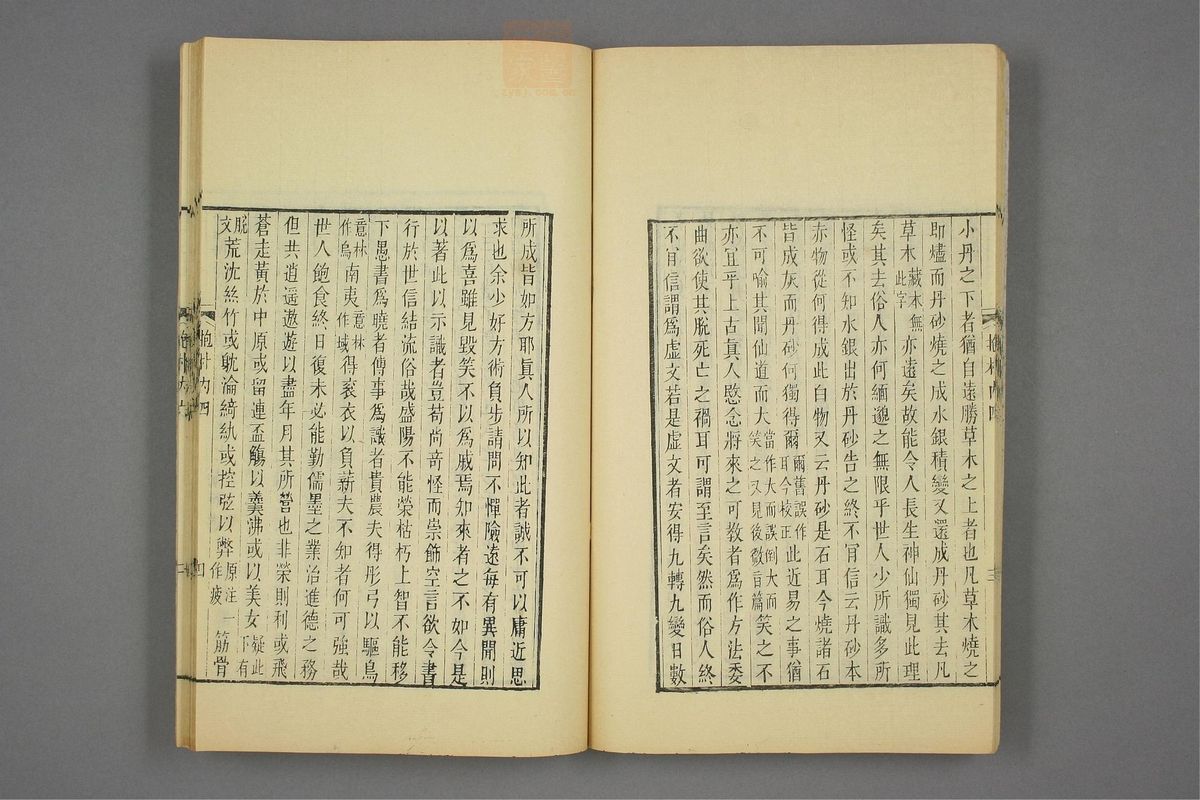 小丹之下者猶自遠勝草木之上者也凡草木燒之
即燼而丹砂燒之成水銀積變又還成丹砂其去凡
草木藏本無此字亦遠矣故能令人長生神仙獨見此理
矣其去俗人亦何緬邈之無限乎世人少所識多所
怪或不知水銀出於丹砂告之終不肎信云丹砂本
赤物從何得成此白物又云丹砂是石耳今燒諸石
皆成灰而丹砂何獨得爾爾舊誤作耳今校正此近易之事猶
不可喻其聞仙道而大當作大而誤倒大而笑之又見後微言篇笑之不
亦宜乎上古眞人愍念將來之可敎者爲作方法委
曲欲使其脫死亡之禍耳可謂至言矣然而俗人終
不肎信謂爲虛文若是虛文者安得九轉九變日數
所成皆如方耶眞人所以知此者誠不可以庸近思
求也余少好方術負步請問不憚險遠每有異聞則
以爲喜雖見毀笑不以爲戚焉知來者之不如今是
以著此以示識者豈苟尚奇怪而崇飾空言欲令書
行於世信結流俗哉盛陽不能榮枯朽上智不能移
下愚書爲曉者傳事爲識者貴農夫得彤弓以驅鳥
意林作烏南夷意林作域得袞衣以負薪夫不知者何可強哉
世人飽食終日復未必能勤儒墨之業治進德之務
但共逍遥遨遊以盡年月其所營也非榮則利或飛
蒼走黃於中原或留連盃觴以羹沸或以美女疑此下有
脫文荒沈絲竹或躭淪綺紈或控弦以弊原注一作疲筋骨
抱朴內四
四